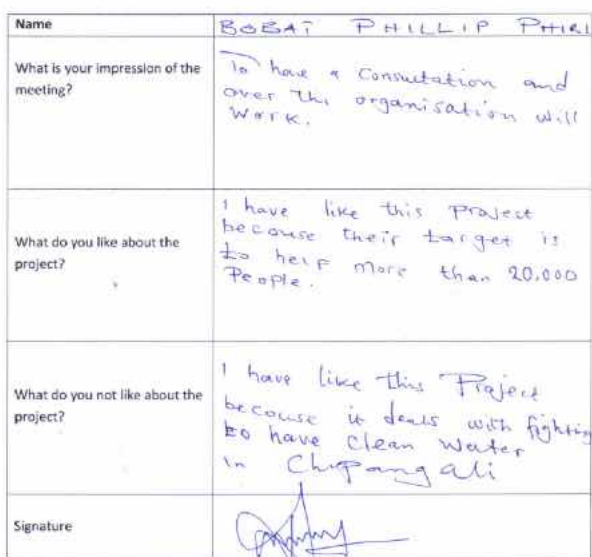 Name
BOBAT PHILLIP PHIRI
What is your impression of the
meeting?
To have a Consultation and
over the organisation will
Work.
What do you like about the
project?
I have like this Project
because their target is
to help more than 20,000
People.
What do you not like about the
project?
I have like this Project
becouse it deals with fighting
to have clean Water
in Chipangali
Signature